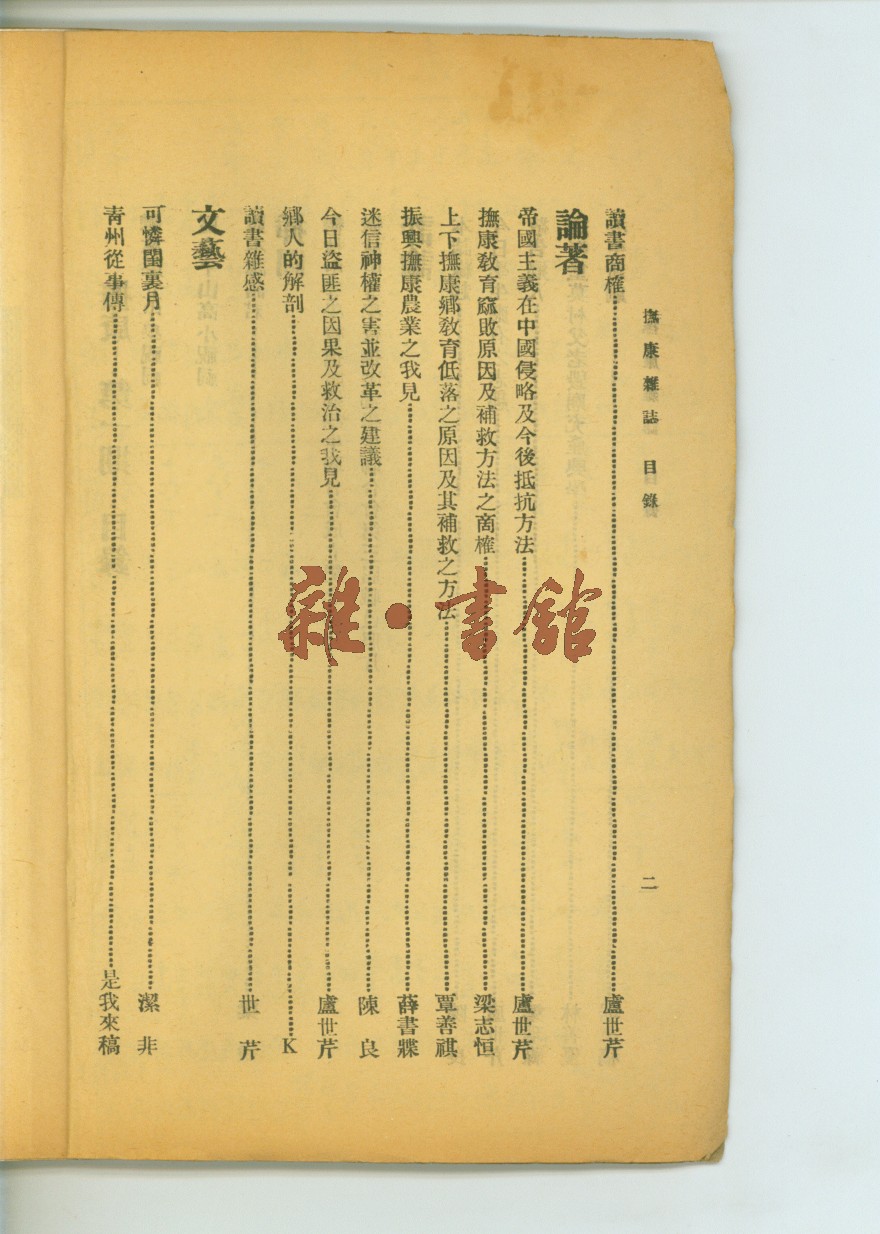 撫康雜誌 目錄 二
讀書商榷 盧世芹
論著
帝國主義在中國侵略及今後抵抗方法 盧世芹
撫康教育窳敗原因及補救方法之商榷 梁志恒
上下撫康鄉教育低落之原因及其補救之方法 覃善祺
振興撫康農業之我見 薛書牒
迷信神權之害並改革之建議 陳良
今日盜匪之因果及救治之我見 盧世芹
鄉人的解剖 K
讀書雜感 世芹
文藝
可憐閨裏月 潔非
青州從事傳 是我來稿
雜·書館